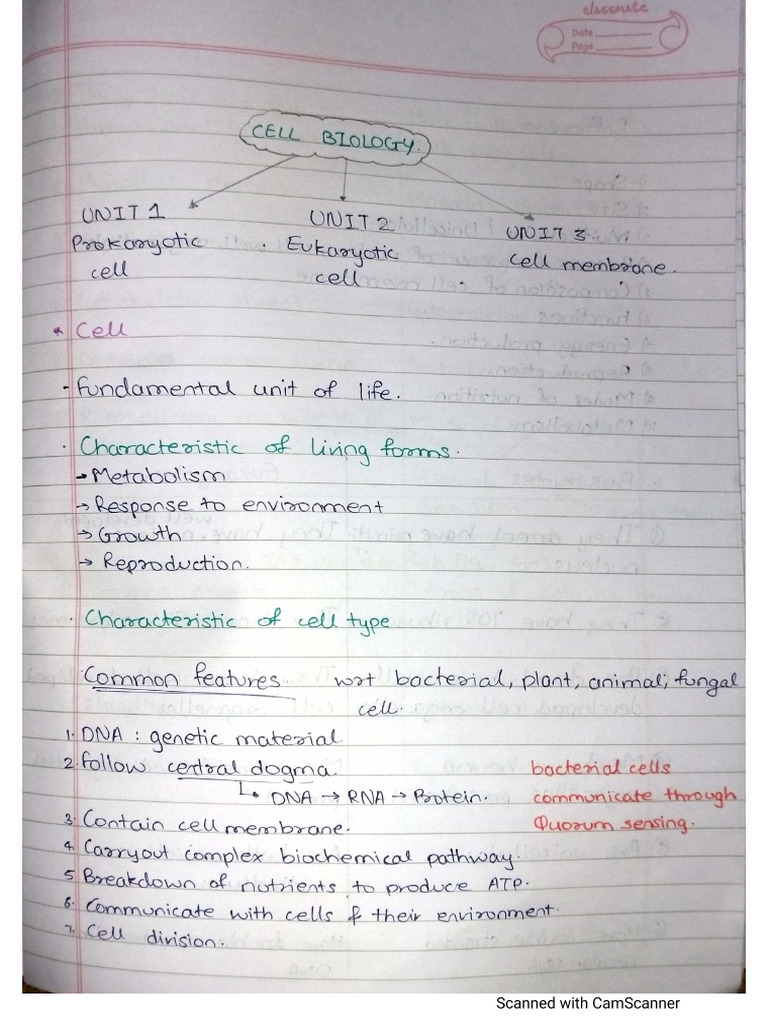 classmate
Date
Page
CELL BIOLOGY.
UNIT 1
Prokaryotic
cell
UNIT 2
Eukaryotic
cell
UNIT 3
Cell membrane.
* Cell
- Fundamental unit of life.
· Characteristic of living forms.
→ Metabolism
→ Response to environment
→ Growth
→ Reproduction.
· Characteristic of cell type
Common features wrt bacterial, plant, animal, fungal
cell.
1. DNA : genetic material.
2. Follow central dogma.
↳ DNA → RNA → Protein.
3. Contain cell membrane.
4. Carryout complex biochemical pathway.
5. Breakdown of nutrients to produce ATP.
6. Communicate with cells & their environment.
7. Cell division.
bacterial cells
communicate through
Quorum sensing.
Scanned with CamScanner